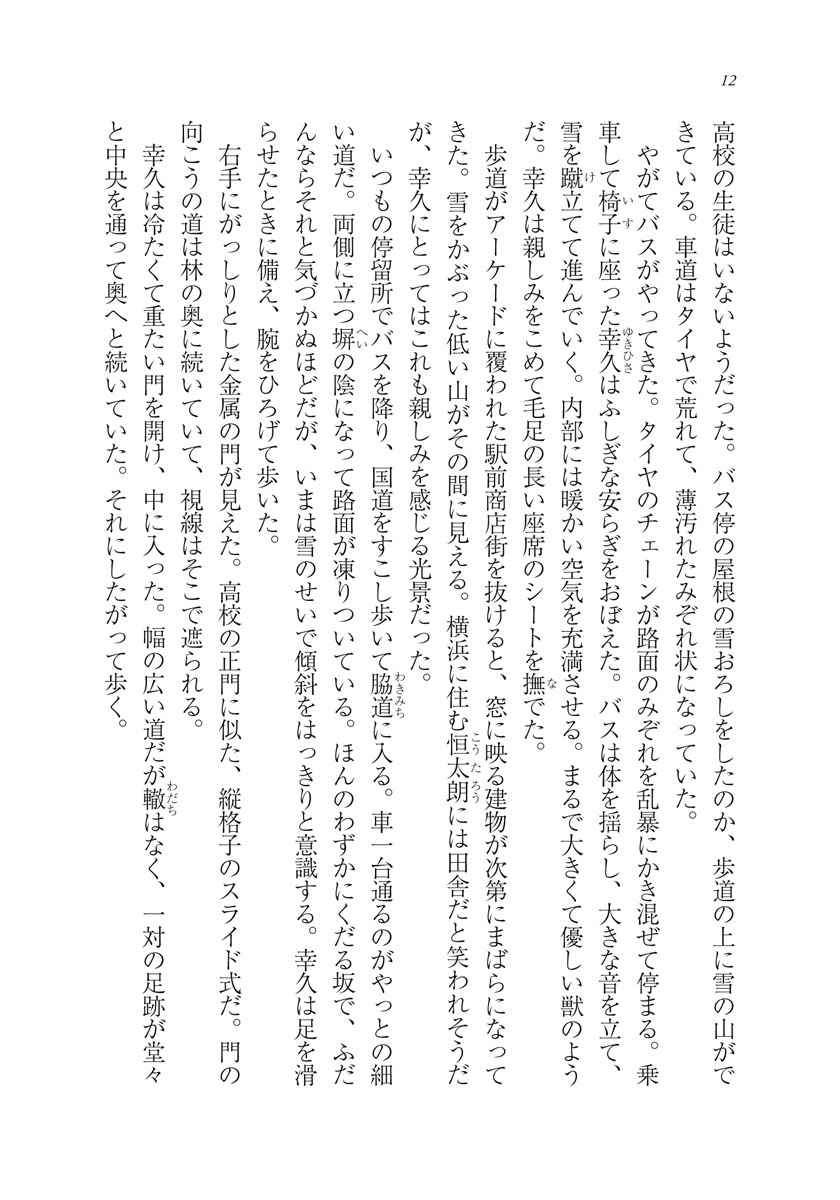 12
高校の生徒はいないようだった。バス停の屋根の雪おろしをしたのか、歩道の上に雪の山がで
きている。車道はタイヤで荒れて、薄汚れたみぞれ状になっていた。
やがてバスがやってきた。タイヤのチェーンが路面のみぞれを乱暴にかき混ぜて停まる。乗
車して椅子に座った幸久はふしぎな安らぎをおぼえた。バスは体を揺らし、大きな音を立て、
雪を蹴立てて進んでいく。内部には暖かい空気を充満させる。まるで大きくて優しい獣のよう
だ。幸久は親しみをこめて毛足の長い座席のシートを撫でた。
歩道がアーケードに覆われた駅前商店街を抜けると、窓に映る建物が次第にまばらになって
きた。雪をかぶった低い山がその間に見える。横浜に住む恒太朗には田舎だと笑われそうだ
が、幸久にとってはこれも親しみを感じる光景だった。
いつもの停留所でバスを降り、国道をすこし歩いて脇道に入る。車一台通るのがやっとの細
い道だ。両側に立つ塀の陰になって路面が凍りついている。ほんのわずかにくだる坂で、ふだ
んならそれと気づかぬほどだが、いまは雪のせいで傾斜をはっきりと意識する。幸久は足を滑
らせたときに備え、腕をひろげて歩いた。
右手にがっしりとした金属の門が見えた。高校の正門に似た、縦格子のスライド式だ。門の
向こうの道は林の奥に続いていて、視線はそこで遮られる。
幸久は冷たくて重たい門を開け、中に入った。幅の広い道だが轍はなく、一対の足跡が堂々
と中央を通って奥へと続いていた。それにしたがって歩く。